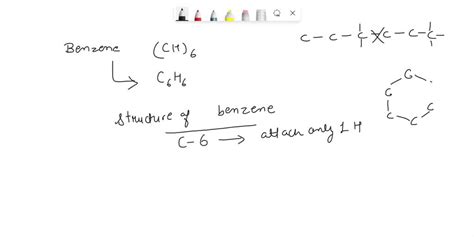 Benzene (CH)6
C6H6
Structure of benzene
C-6 → attach only 1 H
C - C - C - C - C - C -
C
C
C
C
C
C